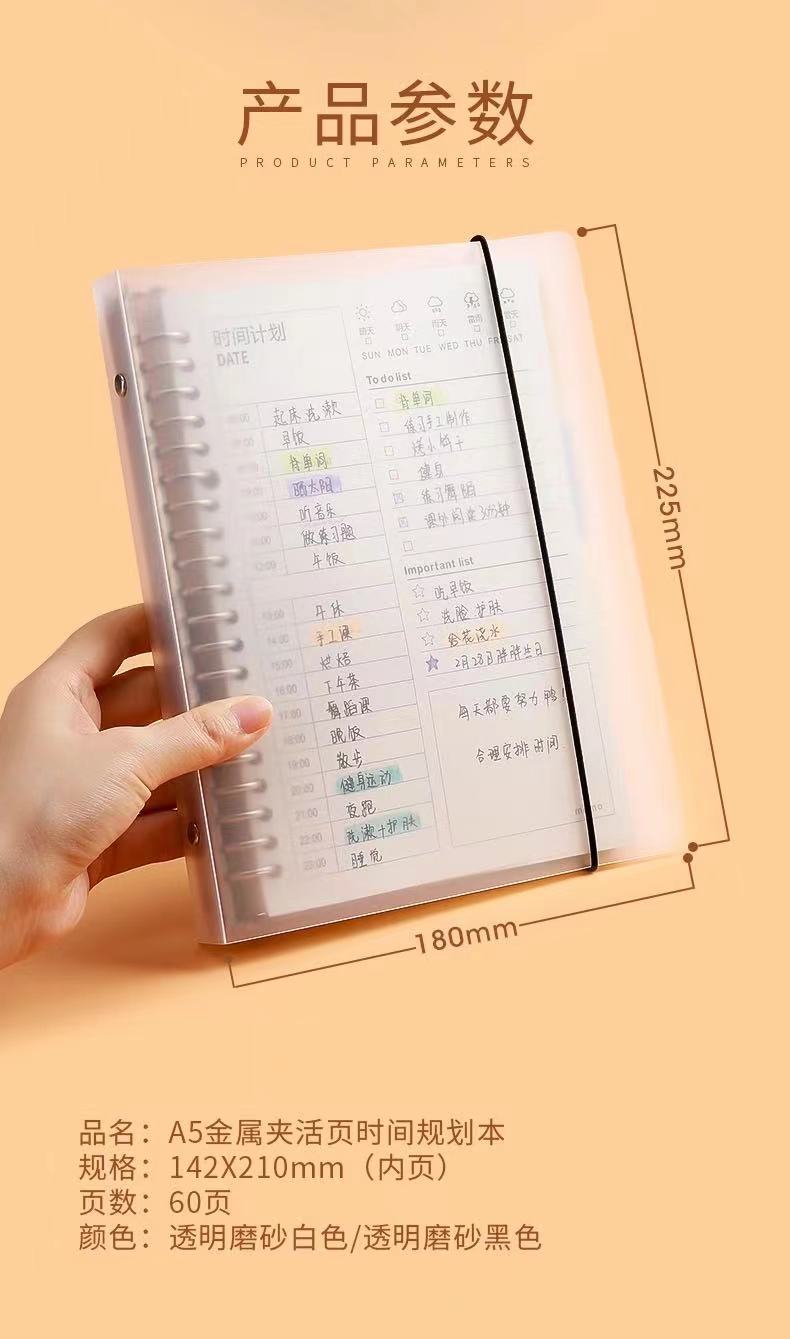 产品参数
PRODUCT PARAMETERS
时间计划
DATE
晴天 雨天
SUN MON TUE WED THU FRI SAT
To do list
背单词
练习手工制作
送小饼干
健身
练习舞蹈
Important list
吃早饭
洗脸 护肤
给花浇水
2月28日胖胖生日
每天都要努力鸭!
合理安排时间
memo
起床洗漱
早饭
背单词
晒太阳
听音乐
做练习题
12:00 午饭
13:00 午休
14:00 手工课
15:00 烘焙
16:00 下午茶
17:00 舞蹈课
18:00 晚饭
19:00 散步
20:00 健身运动
21:00 夜跑
22:00 洗漱+护肤
23:00 睡觉
225mm
180mm
品名：A5金属夹活页时间规划本
规格：142X210mm（内页）
页数：60页
颜色：透明磨砂白色/透明磨砂黑色